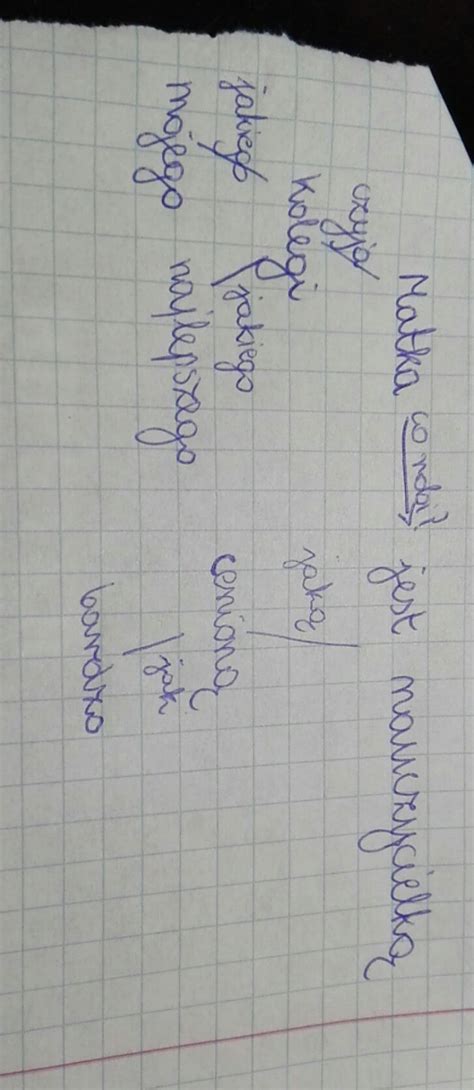 Matka co robi? jest nauczycielką
czyja jaką
kolegi cenioną
jakiego jakiego jak
mojego najlepszego bardzo